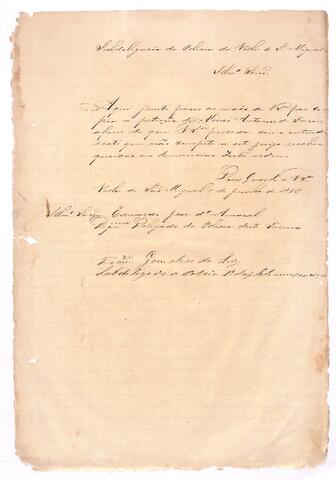 Subdelegacia de Policia da Villa de S. Miguel
Illmo. Senr.
Aqui junto passo as mãos de VSa. por co
pia a petição de Maria Antonia de
de que VSa. proceda como entender
visto que não compete a este juizo receber
queixas ou denuncias desta ordem.
Deus Guarde a VSa.
Villa de São Miguel 6 de Junho de 1880
Illmo. Senr. Eduardo José d'Amaral
Digmo. Delegado de Policia deste Termo
Franco. Gonçalves da Luz
Subdelegado de Policia 1º Supplente em exercicio